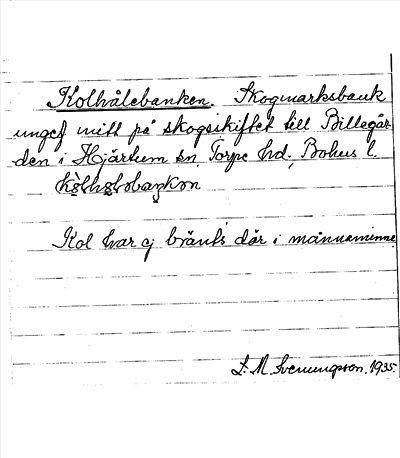 Kolhålebanken. Skogmarksbank
ungef mitt på skogsskiftet till Billegår
den i Hjärtum sn, Torpe hd., Bohus l.
Kol har ej bränts där i mannaminne
L. M. Svenungsson. 1935.